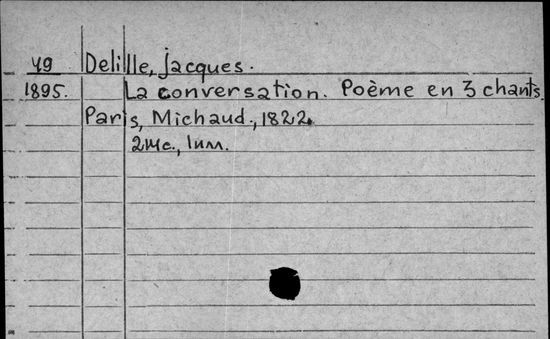 49 Delille, Jacques.
1895. La conversation. Poème en 3 chants.
Paris, Michaud., 1822.